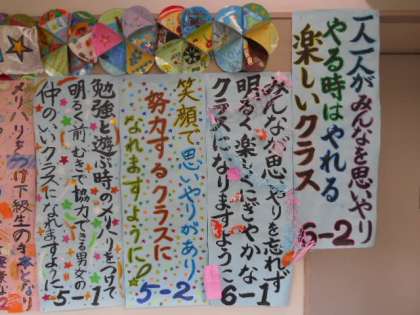 一人一人がみんなを思いやり
やる時はやれる
楽しいクラス
6-2
みんなが思いやりを忘れず
明るく楽しくにぎやかな
クラスになりますように
6-1
笑顔で思いやりがあり
努力するクラスに
なれますように!
5-2
勉強と遊ぶ時のメリハリをつけて
明るく前むきで協力できる男女の
仲のいいクラスになれますように
5-1
メリハリをつけ下級生の